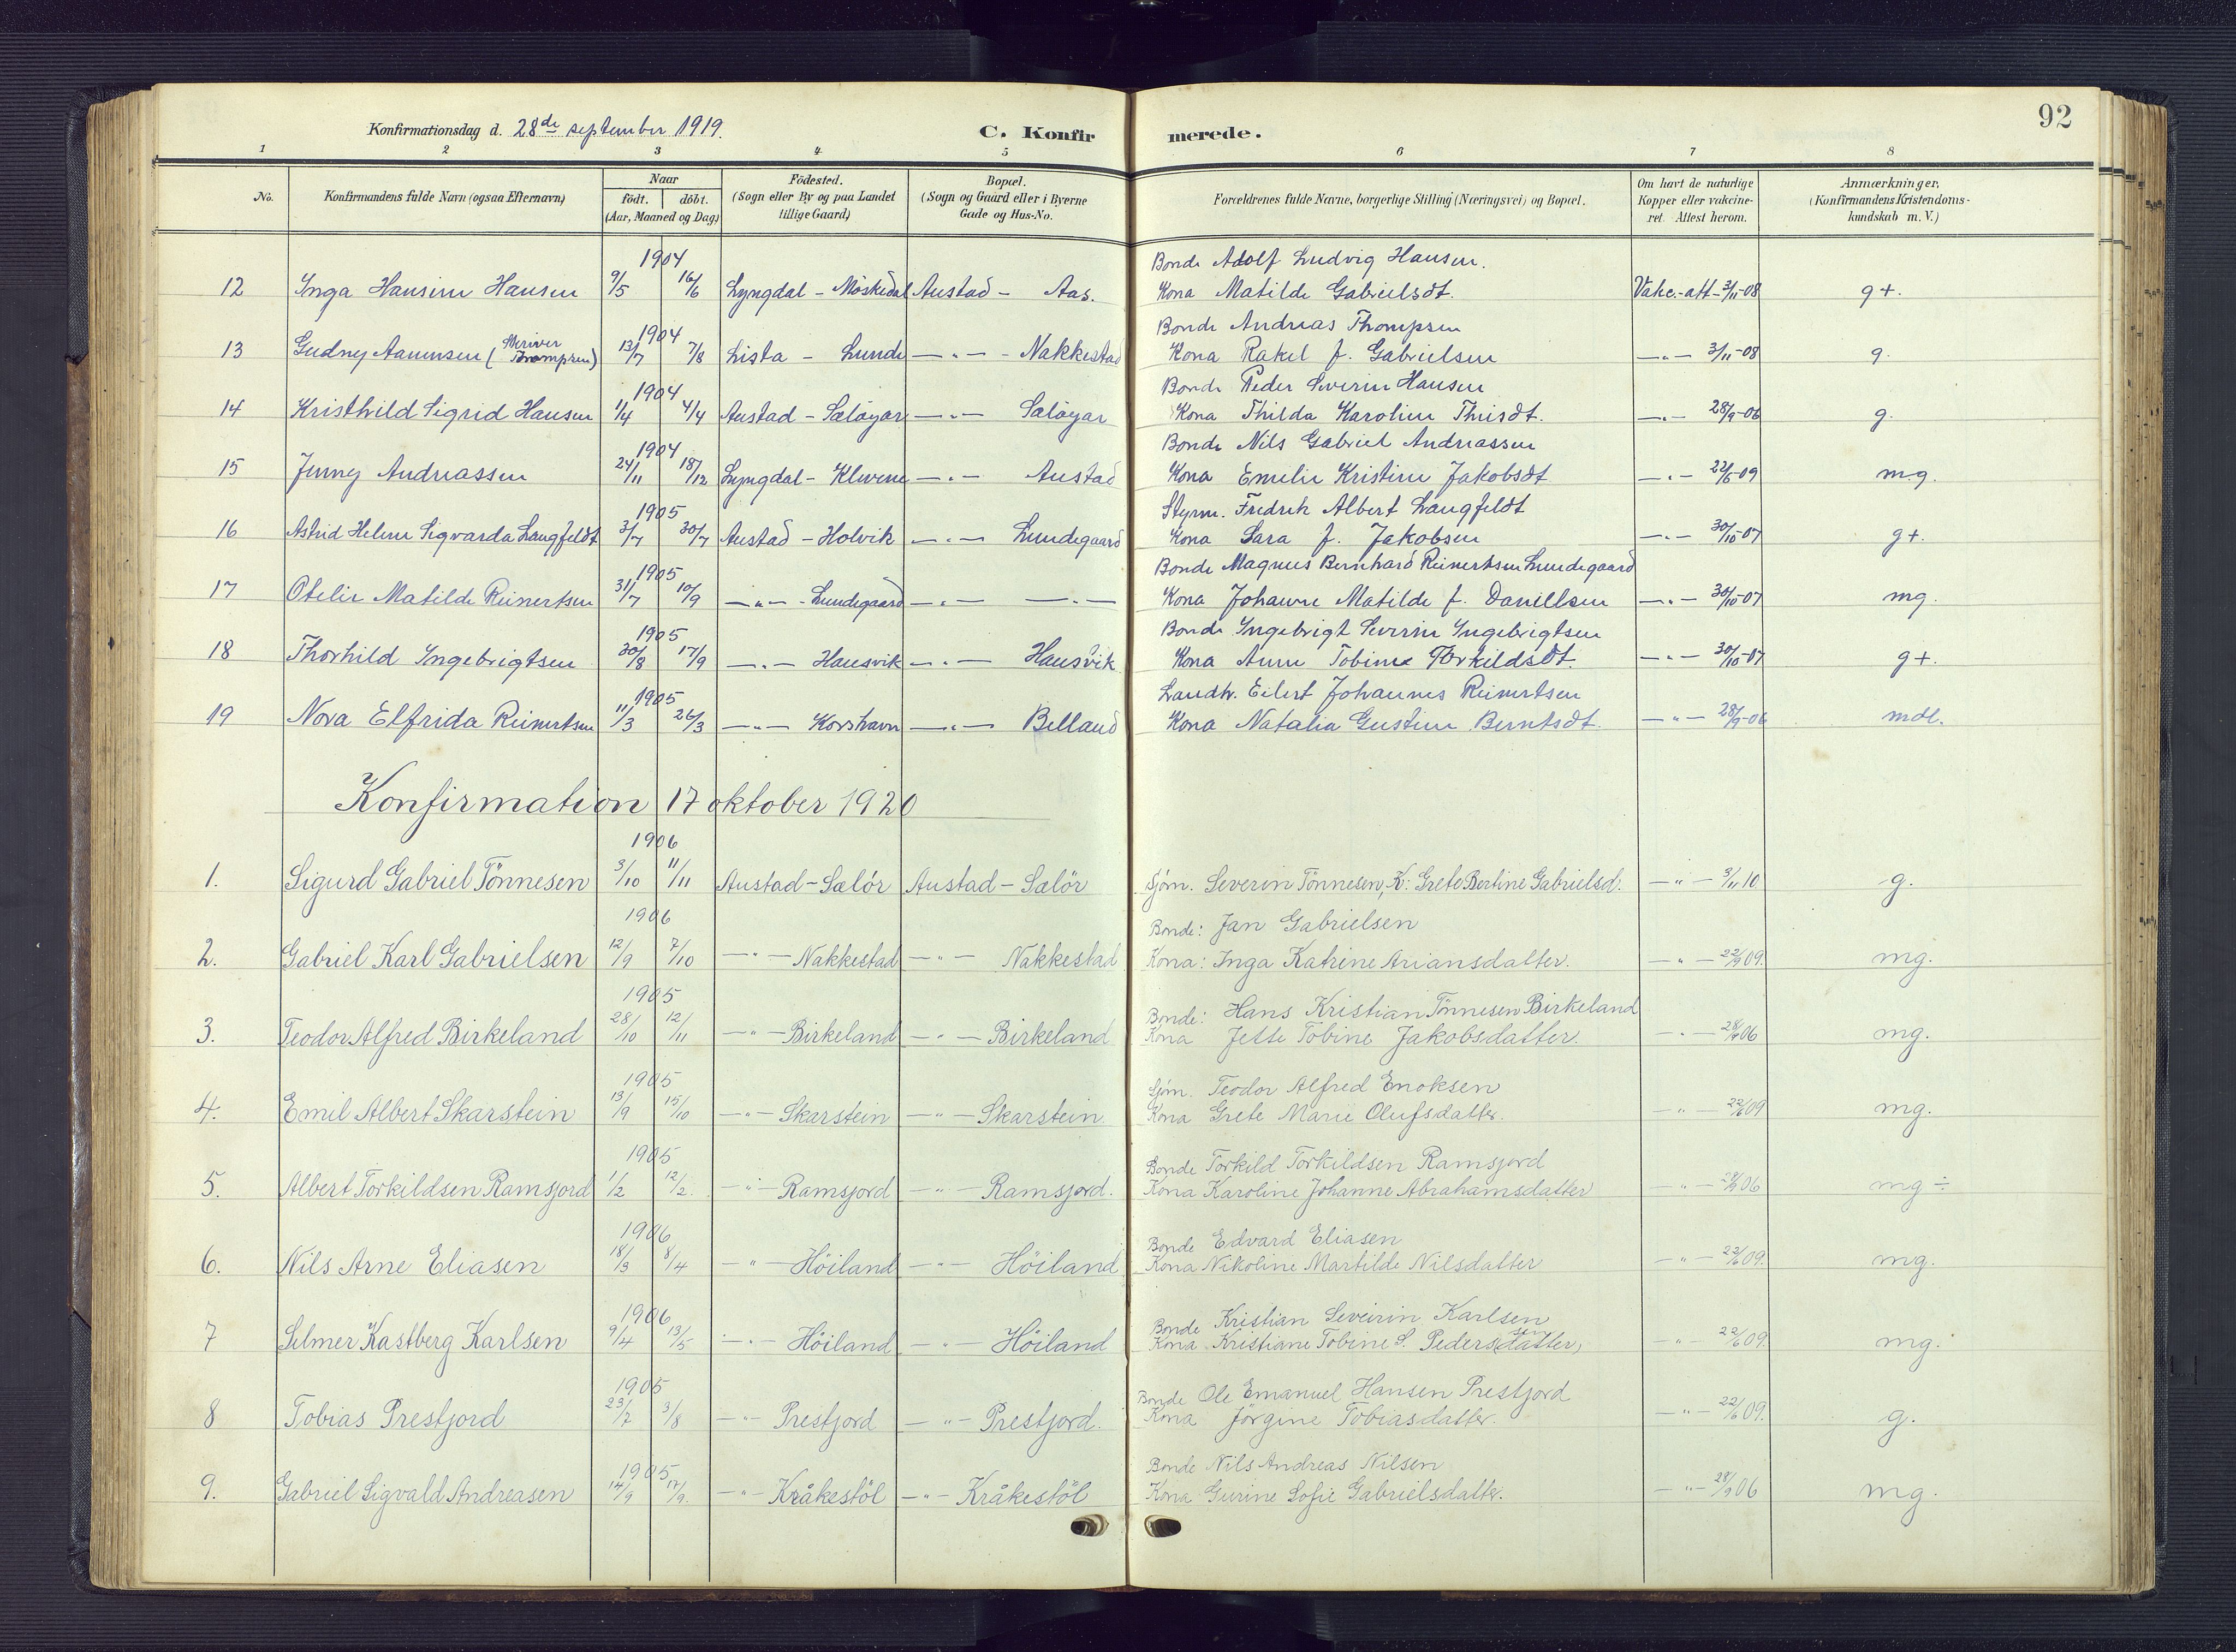 92
Konfirmationsdag d. 28de september 1919. C. Konfirmerede.
1 2 3 4 5 6 7 8
No. Konfirmandens fulde Navn (ogsaa Efternavn) Naar födt. döbt. (Aar, Maaned og Dag) Födested. (Sogn eller By og paa Landet tillige Gaard) Bopæl. (Sogn og Gaard eller i Byerne Gade og Hus-No. Forældrenes fulde Navne, borgerlige Stilling (Næringsvei) og Bopæl. Om havt de naturlige Kopper eller vakcineret. Attest herom. Anmærkninger. (Konfirmandens Kristendomskundskab m. V.)
1904 Bonde Adolf Ludvig Hansen.
12 Ynga Hansine Hansen 9/5 16/6 Lyngdal - Möskedal Austad - Aas. Kona Matilde Gabrielsdt. Vakc.-att - 3/11-08 g+.
1904 Bonde Andreas Thompsen
13 Gudny Aanensen (Skriver Thompsen) 13/7 7/8 Lista - Lunde —"— - Nakkestad Kona Rakel f. Gabrielsen —"— 3/11-08 g.
1904 Bonde Peder Severin Hansen
14 Kristhild Sigrid Hansen 1/4 4/4 Austad - Selöyar —"— Selöyar Kona Thilda Karoline Thisdt. —"— 28/9-06 g.
1904 Bonde Nils Gabriel Andreassen
15 Jenny Andreassen 24/11 18/12 Lyngdal - Klevene —"— Austad Kona Emelie Kristine Jakobsdt —"— 22/6-09 mg.
1905 Styrm. Fredrik Albert Langfeldt
16 Astrid Helene Sigvarda Langfeldt 3/7 30/7 Austad - Holvik —"— Lundegaard Kona Sara f. Jakobsen —"— 30/10-07 g+.
1905 Bonde Magnus Bernhard Reinertsen Lundegaard
17 Otelie Matilde Reinertsen 31/7 10/9 —"— - Lundegaard —"— —"— Kona Johanne Matilde f. Daniellsen —"— 30/10-07 mg.
1905 Bonde Yngebrigt Severin Yngebrigtsen
18 Thorhild Yngebrigtsen 30/8 17/9 —"— Hausvik —"— Hausvik Kona Anne Tobine Torkildsdt. —"— 30/10-07 g+.
1905 Landh. Eilert Johannes Reinertsen
19 Nora Elfrida Reinertsen 11/3 26/3 —"— Korshavn —"— Belland Kona Natalia Gustine Berntsdt. —"— 28/9-06 mdl.
Konfirmation 17 oktober 1920
1906
1. Sigurd Gabriel Tönnesen 3/10 11/11 Austad - Selör Austad - Selör Sjöm. Severin Tönnesen, K: Grete Bertine Gabrielsd. —"— 3/11 10 g.
1906 Bonde: Jan Gabrielsen
2. Gabriel Karl Gabrielsen 12/9 7/10 —"— Nakkestad —"— Nakkestad Kona: Inga Katrine Ariansdatter. —"— 22/9 09. mg.
1905 Bonde: Hans Kristian Tönnesen Birkeland
3. Teodor Alfred Birkeland 28/10 12/11 —"— Birkeland —"— Birkeland Kona Jette Tobine Jakobsdatter. —"— 28/9 06 mg.
1905 Sjöm. Teodor Alfred Enoksen
4. Emil Albert Skarstein 13/9 15/10 —"— Skarstein —"— Skarstein. Kona Grete Marie Olufsdatter. —"— 22/6 09 mg.
1905 Bonde Torkild Torkildsen Ramsjord
5. Albert Torkildsen Ramsjord 1/2 12/2. —"— Ramsjord —"— Ramsjord. Kona Karoline Johanne Abrahamsdatter —"— 28/9 06 mg ÷
1906 Bonde Edvard Eliasen
6. Nils Arne Eliasen 18/3 8/4 —"— Höiland —"— Höiland Kona Nikoline Martilde Nilsdatter —"— 22/6 09. mg.
1906 Bonde Kristian Severin Karlsen
7 Selmer Kastberg Karlsen 9/4 13/5 —"— Höiland —"— Höiland Kona Kristiane Tobine S. Pedersdatter, —"— 22/6 09. mg.
1905 Bonde Ole Emanuel Hansen Prestjord
8 Tobias Prestjord 23/7 3/8 —"— Prestjord —"— Prestjord. Kona Jörgine Tobiasdatter. —"— 22/6 09. g.
1905 Bonde Nils Andreas Nilsen
9. Gabriel Sigvald Andreasen 14/9 17/9. —"— Kråkestöl —"— Kråkestöl Kona Gurine Sofie Gabrielsdatter. —"— 28/9 06 mg.